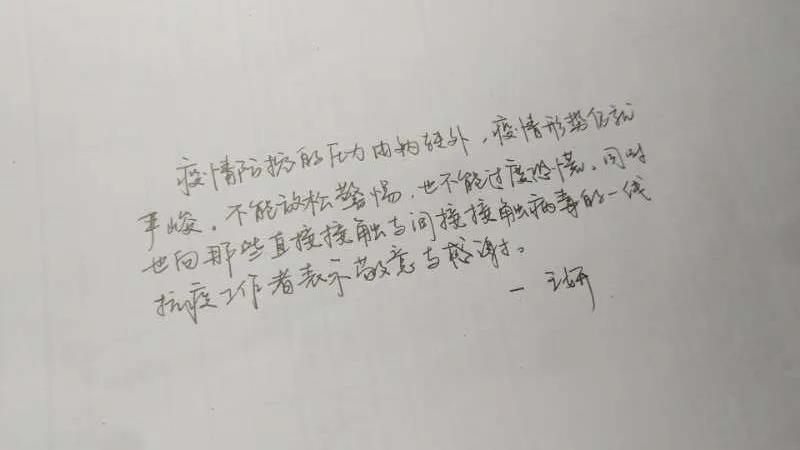 疫情防控的压力由内转外，疫情形势仍就
严峻。不能放松警惕，也不能过度恐慌。同时
也向那些直接接触与间接接触病毒的一线
抗疫工作者表示敬意与感谢。
— 王妍